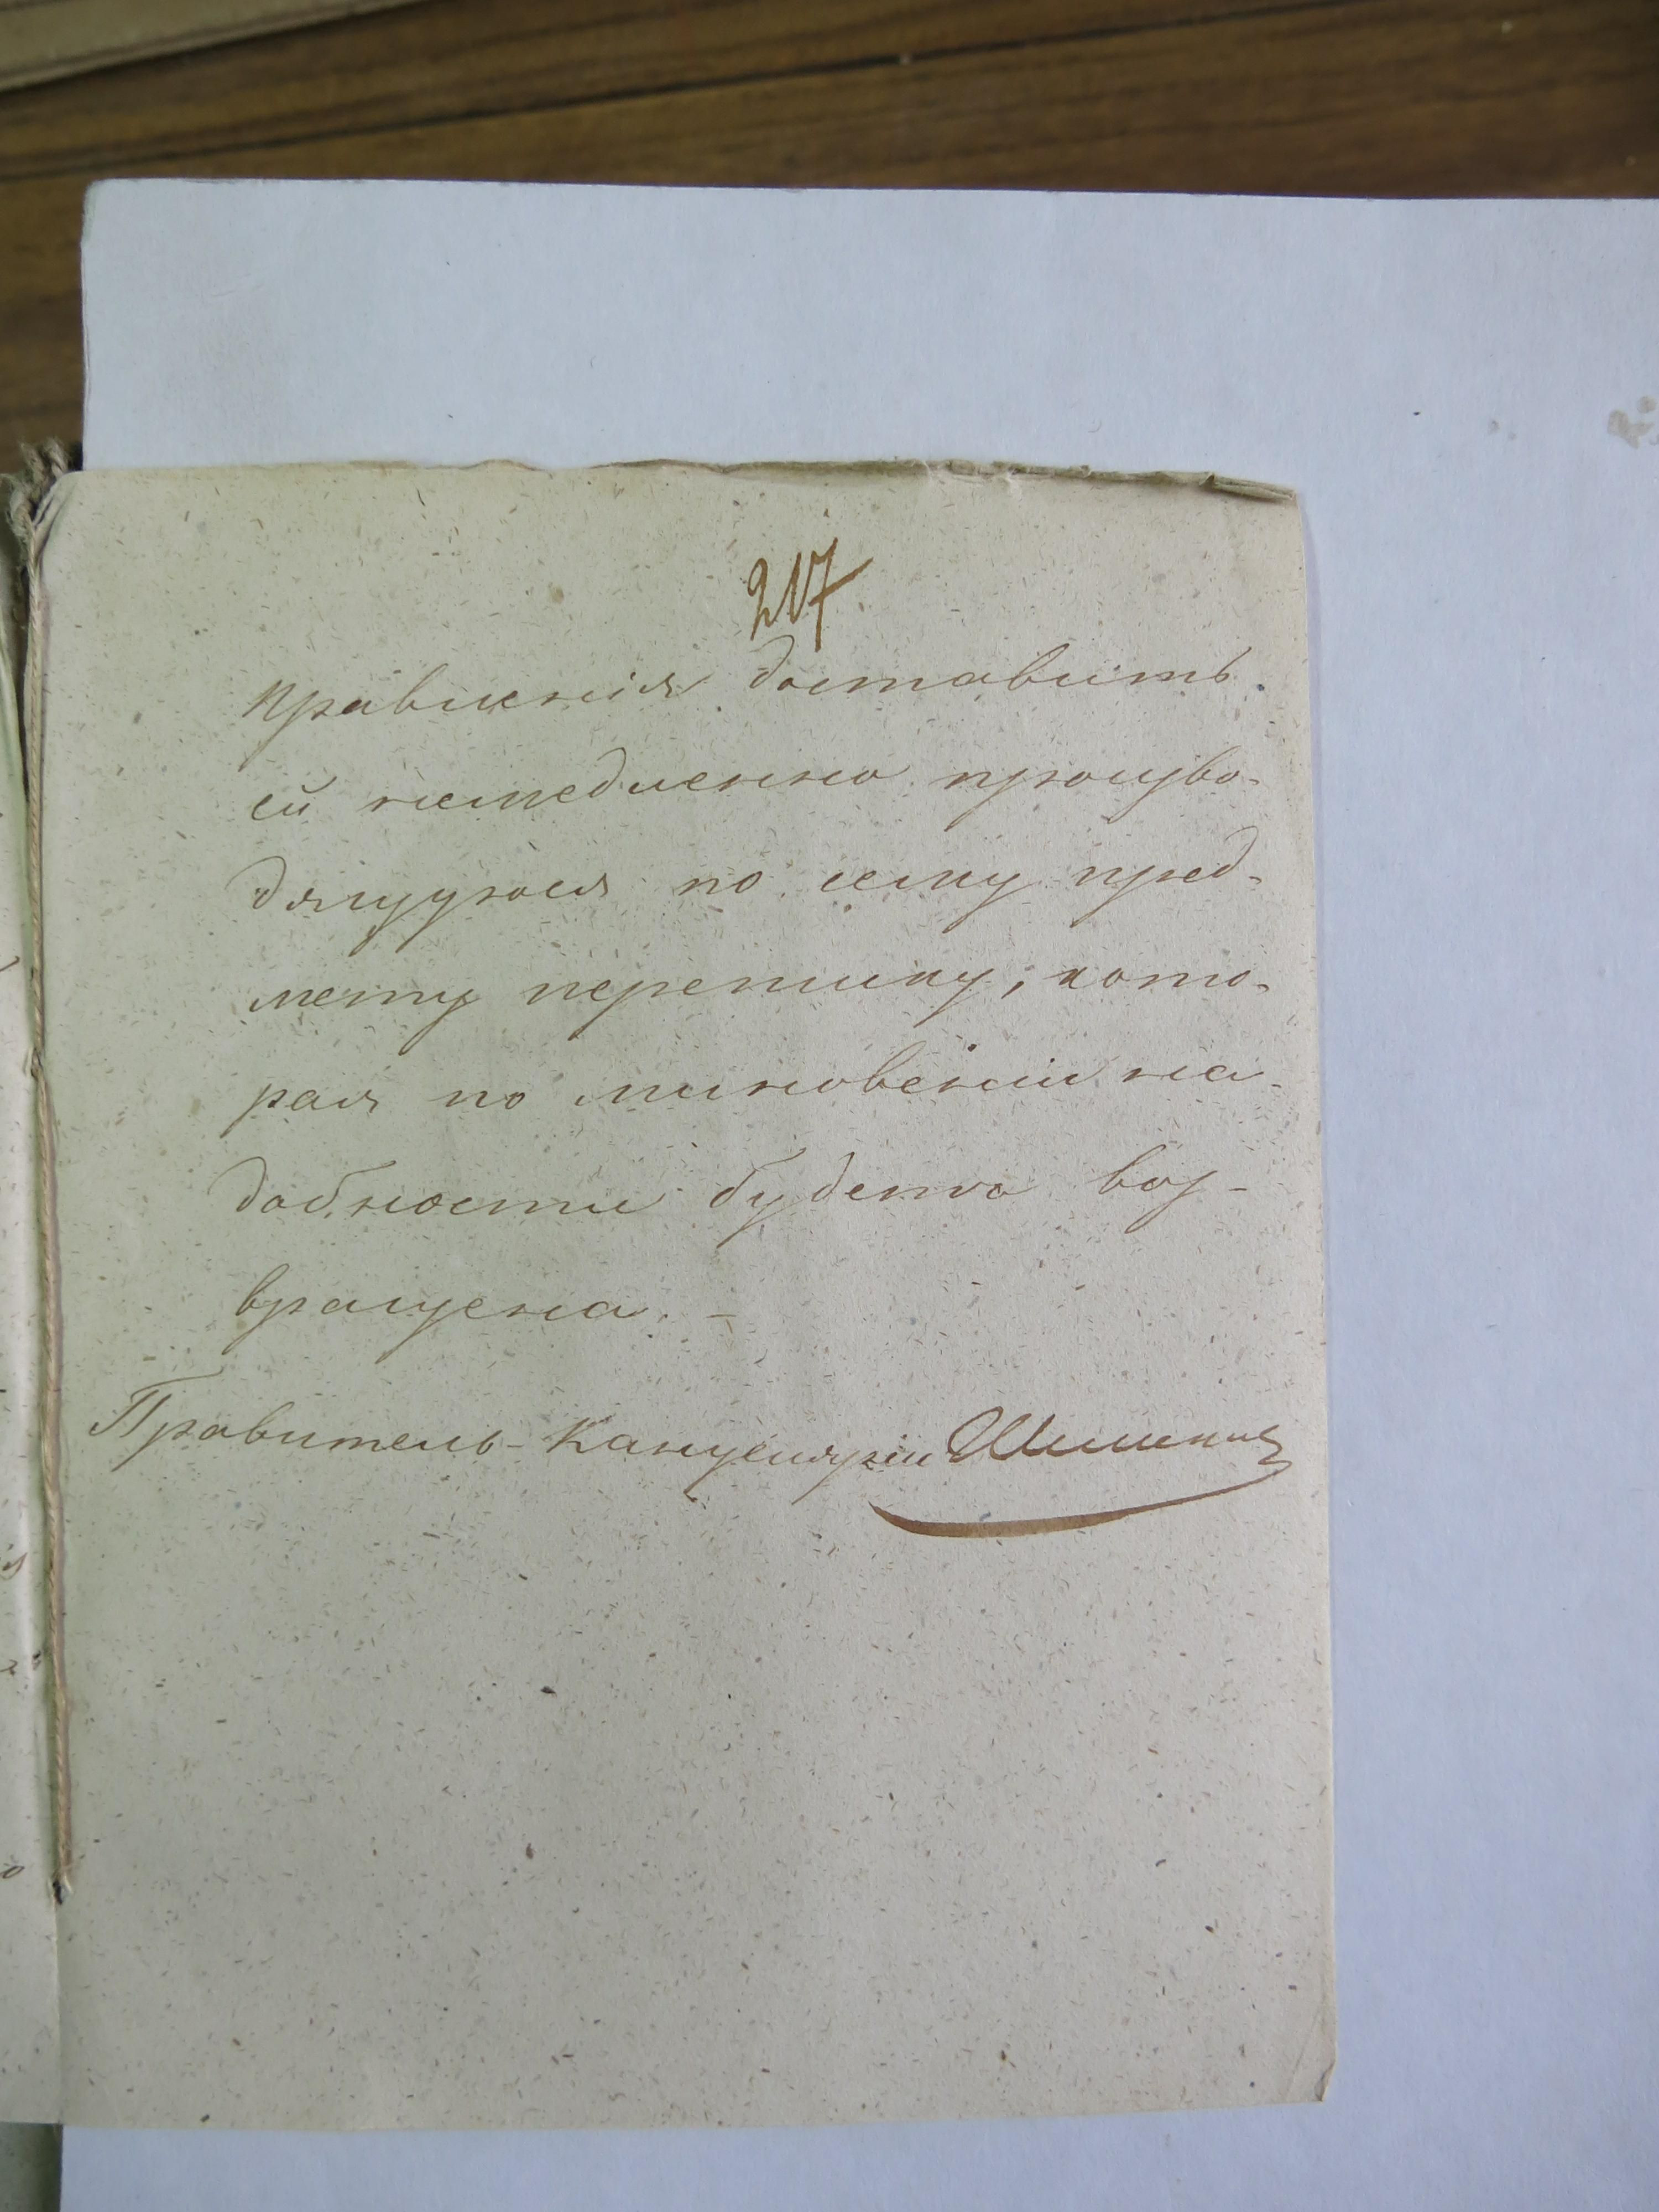 217
правленія доставить
ей немедленно произво-
дящуюся по сему пред-
мету переписку, кото-
рая по миновеніи на-
добности будетъ воз-
вращена. –
Правитель-Канцеляріи